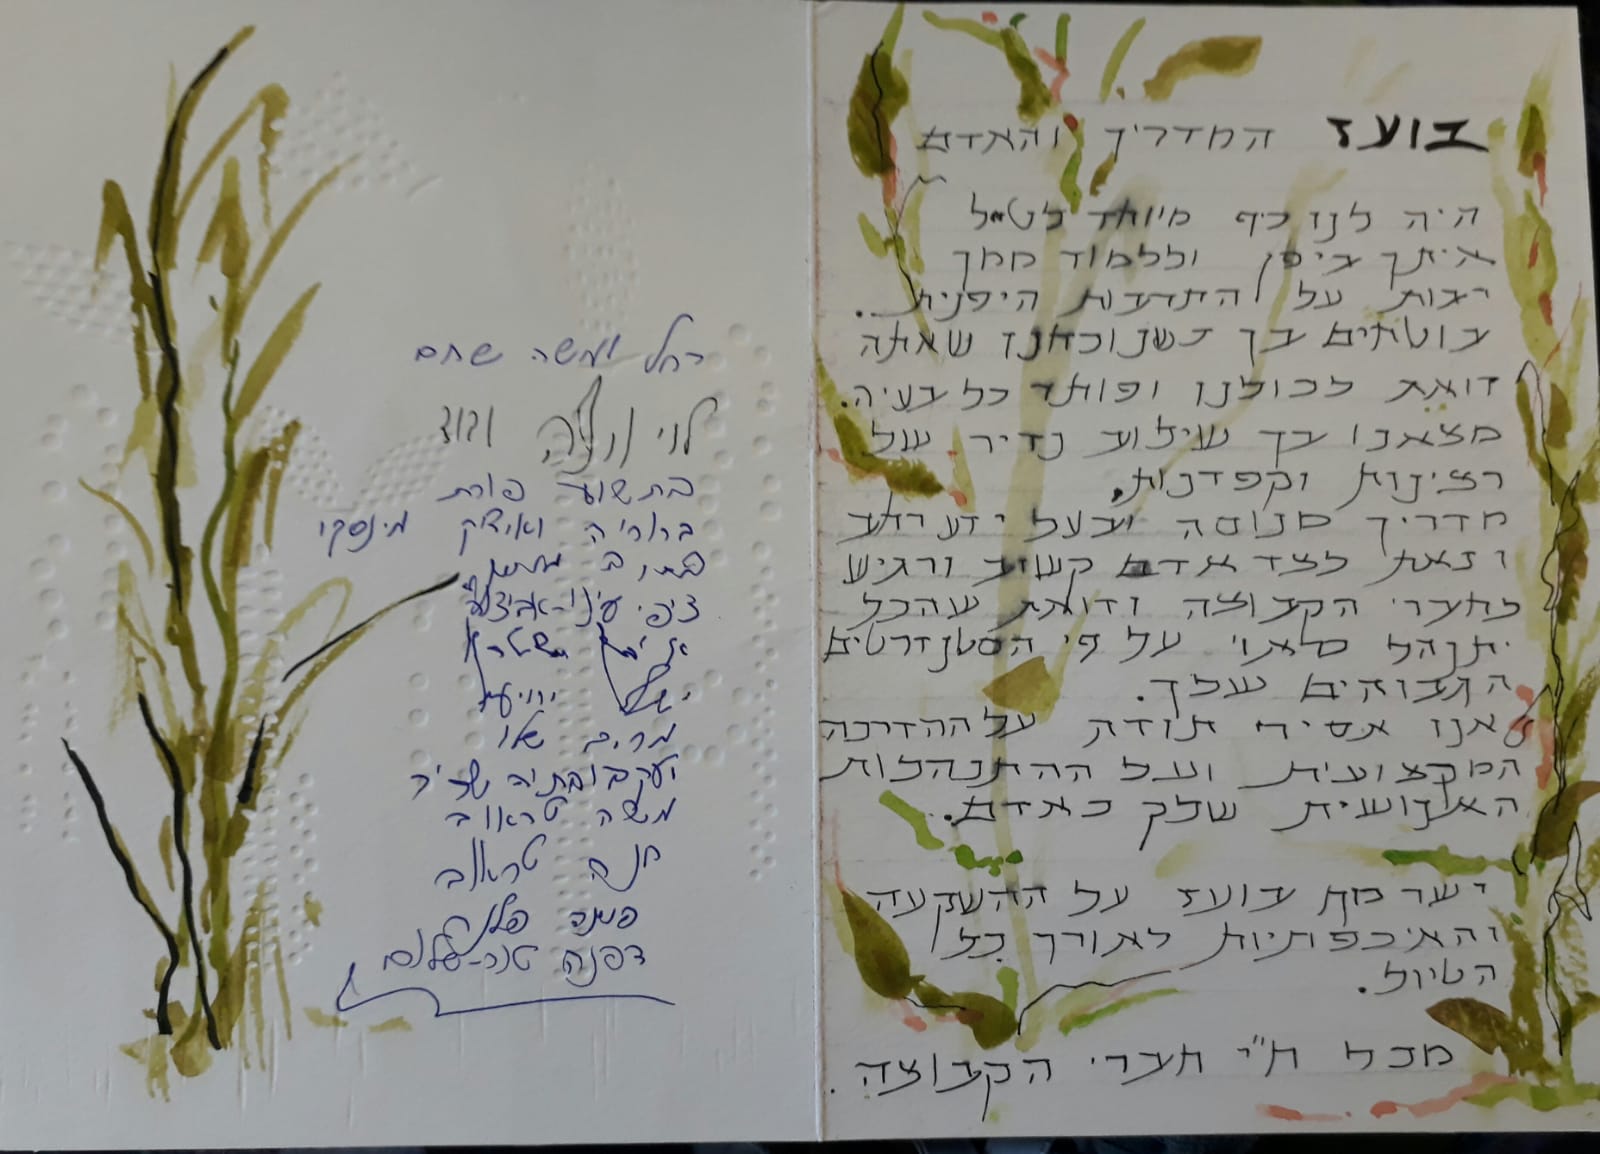 בועז המדריך והאדם
היה לנו כיף מיוחד לטייל
איתך ביפן וללמוד ממך
רבות על התרבות היפנית..
בוטחים בך כשנוכחנו שאתה
דואג לכולנו ופותר כל בעיה.
מצאנו בך שילוב נדיר של
רצינות וקפדנות,
מדריך מנוסה ובעל ידע רחב
וזאת לצד אדם קשוב ורגיש
לחברי הקבוצה ודואג שהכל
יתנהל כראוי על פי הסטנדרטים
הגבוהים שלך.
אנו אסירי תודה על ההדרכה
המקצועית ועל ההתנהלות
האנושית שלך כאדם.
יישר כח בועז על ההשקעה
והאיכפתיות לאורך כל
הטיול.
מכל ח"י חברי הקבוצה.
רחל ומשה שחם
בת שוע פורת
ברוריה ואיציק מינסקי
ציפי עינו-
מרים שלו
יעקב ובתיה
משה טראוב
חנה טראוב
פנינה
דפנה טנר-שלום